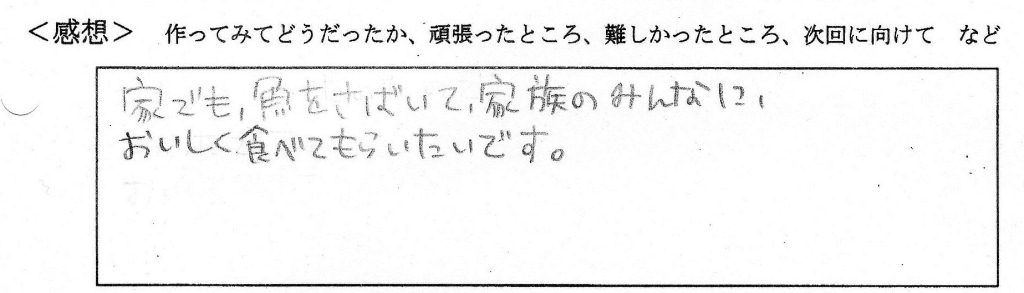 ＜感想＞ 作ってみてどうだったか、頑張ったところ、難しかったところ、次回に向けて など
家でも,魚をさばいて,家族のみんなに,
おいしく食べてもらいたいです。